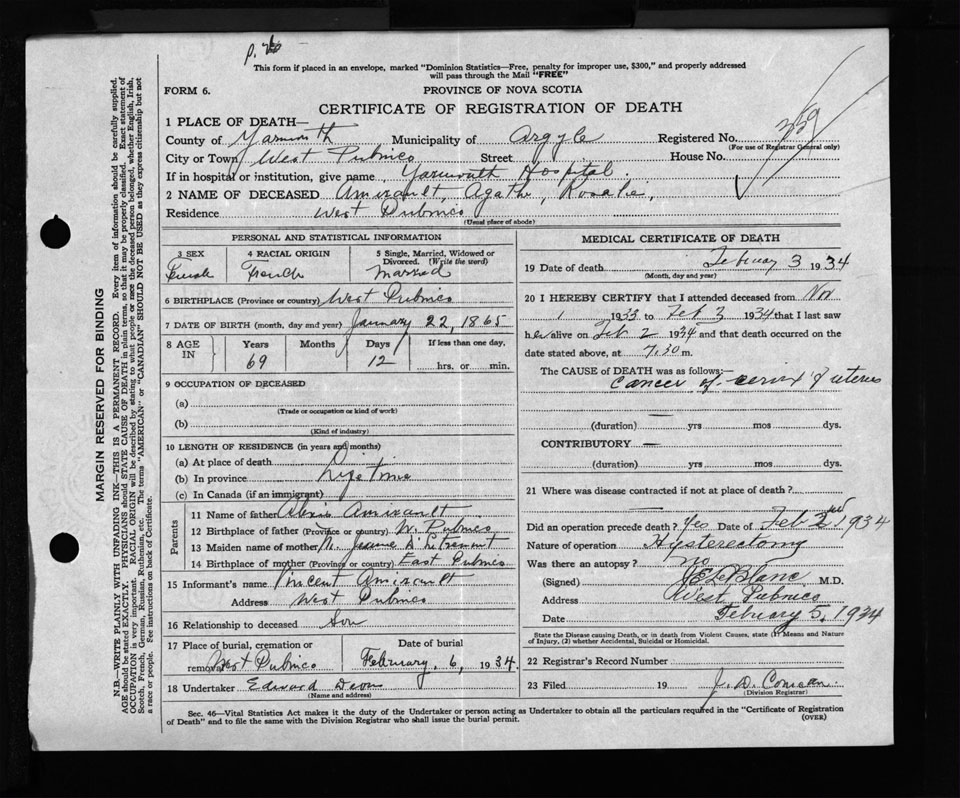 This form if placed in an envelope, marked "Dominion Statistics—Free, penalty for improper use, $300," and properly addressed
will pass through the Mail "FREE"
FORM 6. PROVINCE OF NOVA SCOTIA
CERTIFICATE OF REGISTRATION OF DEATH
1 PLACE OF DEATH—
County of Yarmouth Municipality of Argyle Registered No. 339
(For use of Registrar General only)
City or Town West Pubnico Street House No.
If in hospital or institution, give name Yarmouth Hospital.
2 NAME OF DECEASED Amirault, Agathe, Rosalie,
Residence West Pubnico
(Usual place of abode)
PERSONAL AND STATISTICAL INFORMATION
3 SEX 4 RACIAL ORIGIN 5 Single, Married, Widowed or
Divorced. (Write the word)
Female French Married
6 BIRTHPLACE (Province or country) West Pubnico
7 DATE OF BIRTH (month, day and year) January 22, 1865
8 AGE IN Years Months Days If less than one day.
69 12 hrs. or min.
9 OCCUPATION OF DECEASED
(a)
(Trade or occupation or kind of work)
(b)
(Kind of industry)
10 LENGTH OF RESIDENCE (in years and months)
(a) At place of death
(b) In province Life time
(c) In Canada (if an immigrant)
Parents
11 Name of father Alexis Amirault
12 Birthplace of father (Province or country) W. Pubnico
13 Maiden name of mother M. Jeanne D'Entremont
14 Birthplace of mother (Province or country) East Pubnico
15 Informant's name Vincent Amirault
Address West Pubnico
16 Relationship to deceased Son
17 Place of burial, cremation or removal West Pubnico Date of burial
February, 6, 1934.
18 Undertaker Edward
(Name and address)
MEDICAL CERTIFICATE OF DEATH
19 Date of death February 3 1934
(Month, day and year)
20 I HEREBY CERTIFY that I attended deceased from Nov
1 1933 to Feb 3 1934 that I last saw
her alive on Feb 2 1934 and that death occurred on the
date stated above, at 7.30 m.
The CAUSE of DEATH was as follows:—
Cancer of cervix of uterus
(duration) yrs mos dys.
CONTRIBUTORY —
(duration) yrs. mos. dys.
21 Where was disease contracted if not at place of death?
Did an operation precede death? Yes Date of Feb 2nd 1934
Nature of operation Hysterectomy
Was there an autopsy? No
(Signed) LeBlanc M.D.
Address West Pubnico
Date February 5, 1934
State the Disease causing Death, or in death from Violent Causes, state (1) Means and Nature
of Injury, (2) whether Accidental, Suicidal or Homicidal.
22 Registrar's Record Number
23 Filed 19 J. D. Comeau
(Division Registrar)
Sec. 46—Vital Statistics Act makes it the duty of the Undertaker or person acting as Undertaker to obtain all the particulars required in the "Certificate of Registration
of Death" and to file the same with the Division Registrar who shall issue the burial permit. (OVER)
MARGIN RESERVED FOR BINDING
N.B.—WRITE PLAINLY WITH UNFADING INK—THIS IS A PERMANENT RECORD. Every item of information should be carefully supplied.
AGE should be stated EXACTLY. PHYSICIANS should STATE CAUSE OF DEATH in plain terms, so that it may be properly classified. Exact statement of
OCCUPATION is very important. RACIAL ORIGIN will be described by stating to what people or race the deceased person belonged, whether English, Irish,
Scotch, French, German, Russian, Ruthenian, etc. The terms "AMERICAN" or "CANADIAN" SHOULD NOT BE USED as they express citizenship but not
a race or people. See instructions on back of Certificate.